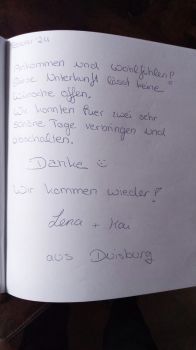 24
Ankommen und Wohlfühlen!
Diese Unterkunft lässt keine
Wünsche offen.
Wir konnten hier zwei sehr
schöne Tage verbringen und
abschalten.
Danke ☺
Wir kommen wieder!
Lena + Kai
aus Duisburg